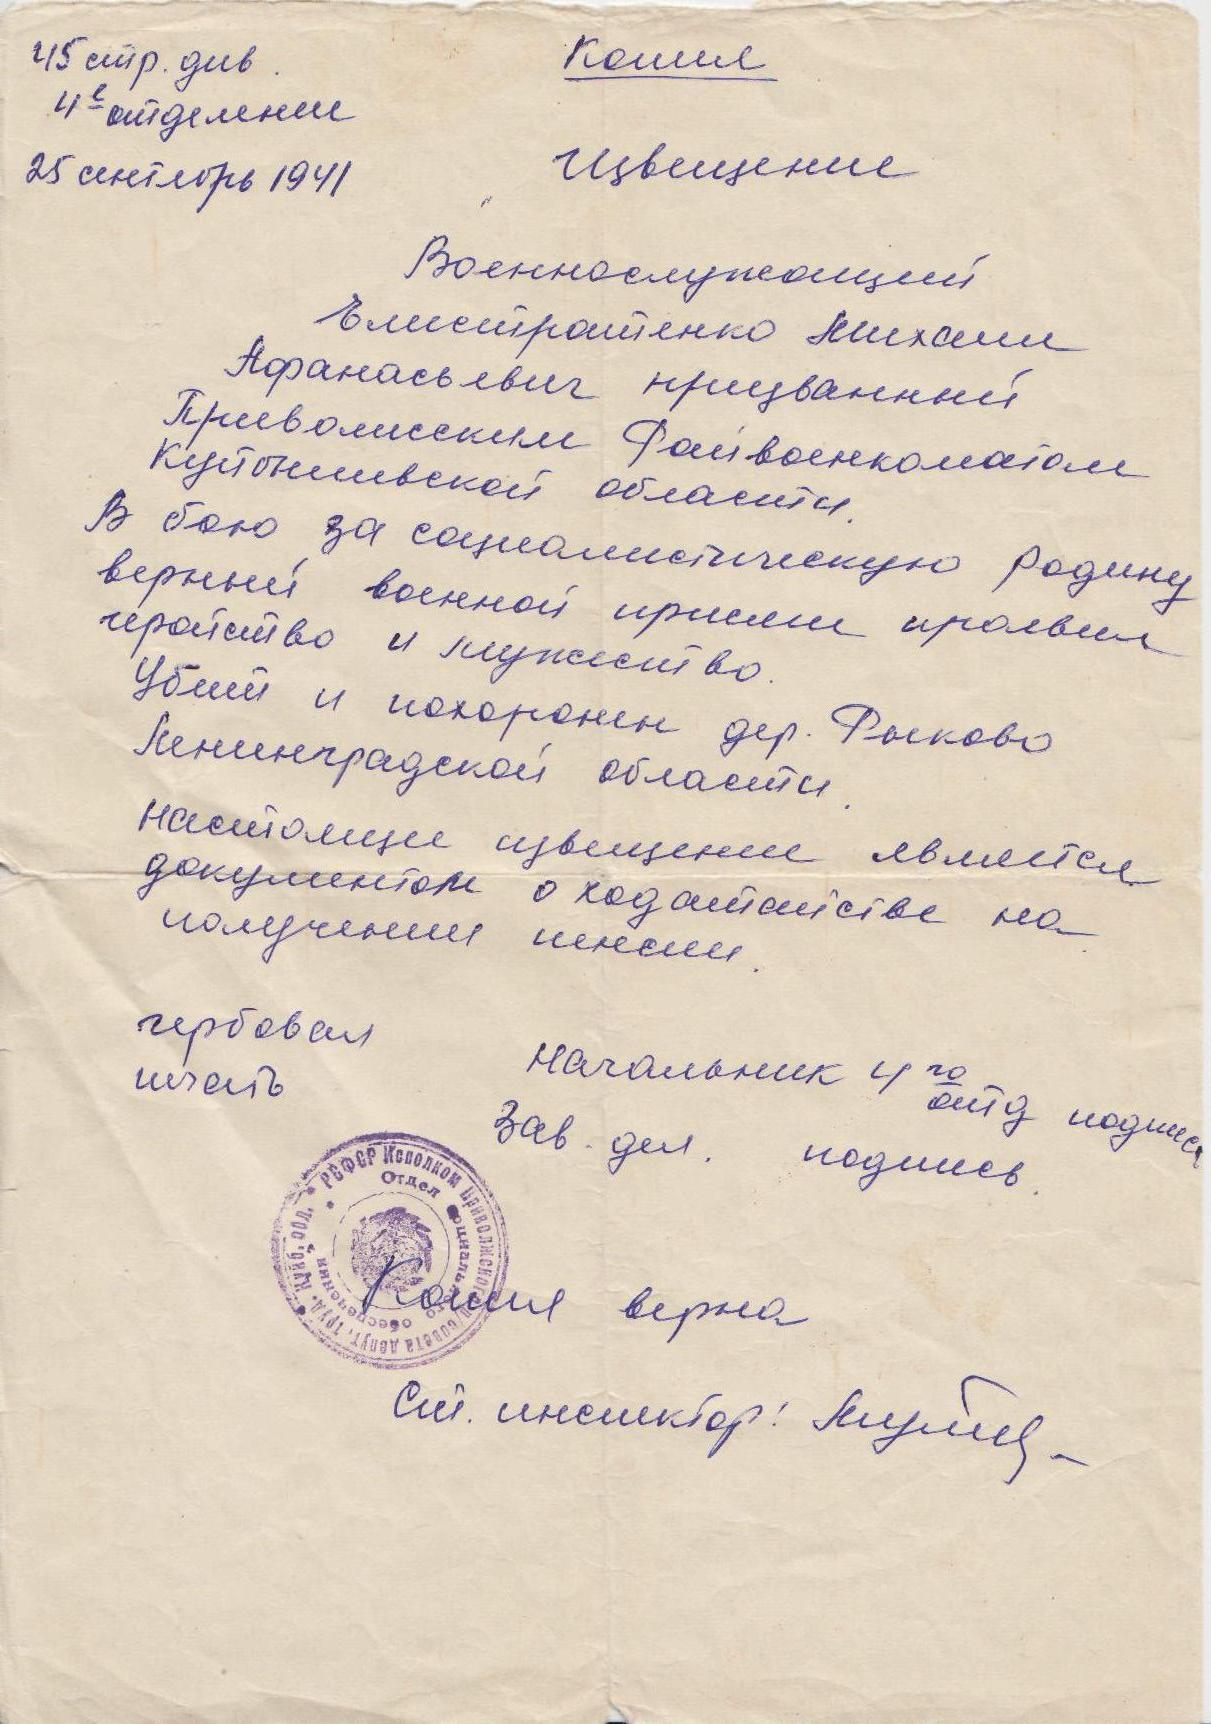 45 стр. див.
4е отделение
25 сентябрь 1941
Копия
Извещение
Военнослужащий
Елистратенко Михаил
Афанасьевич призванный
Приволжским Райвоенкоматом
Куйбышевской области.
В бою за социалистическую Родину
верный военной присяги проявил
геройство и мужество.
Убит и похоронен дер. Рыково
Ленинградской области.
Настоящие извещение является
документом о ходатайстве на
получении пенсии.
гербовая
печать
Начальник 4го отд подпись
Зав. дел. подпись.
РСФСР Исполком Приволжского совета депут. труд. Куйб. обл.
Отдел социального обеспечения
Копия верна
Ст. инспектор: